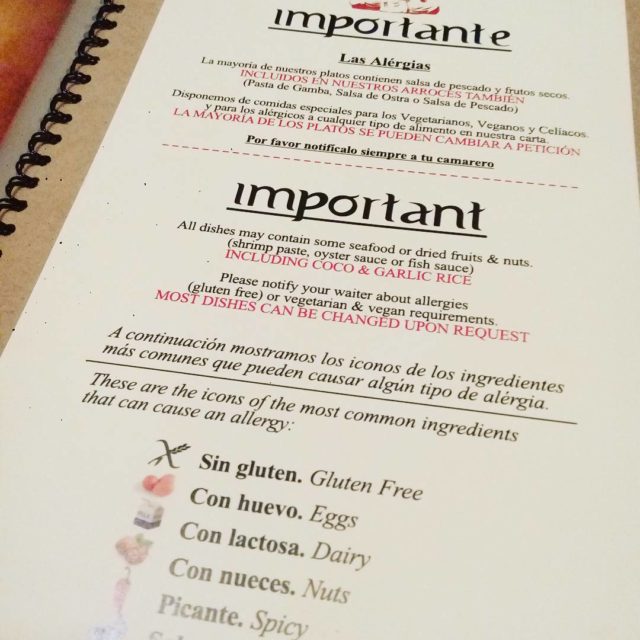 importante
Las Alérgias
La mayoría de nuestros platos contienen salsa de pescado y frutos secos.
INCLUIDOS EN NUESTROS ARROCES TAMBIÉN
(Pasta de Gamba, Salsa de Ostra o Salsa de Pescado)
Disponemos de comidas especiales para los Vegetarianos, Veganos y Celíacos.
y para los alérgicos a cualquier tipo de alimento en nuestra carta.
LA MAYORÍA DE LOS PLATOS SE PUEDEN CAMBIAR A PETICIÓN
Por favor notifícalo siempre a tu camarero
important
All dishes may contain some seafood or dried fruits & nuts.
(shrimp paste, oyster sauce or fish sauce)
INCLUDING COCO & GARLIC RICE
Please notify your waiter about allergies
(gluten free) or vegetarian & vegan requirements.
MOST DISHES CAN BE CHANGED UPON REQUEST
A continuación mostramos los iconos de los ingredientes
más comunes que pueden causar algún tipo de alérgia.
These are the icons of the most common ingredients
that can cause an allergy:
Sin gluten. Gluten Free
Con huevo. Eggs
Con lactosa. Dairy
Con nueces. Nuts
Picante. Spicy